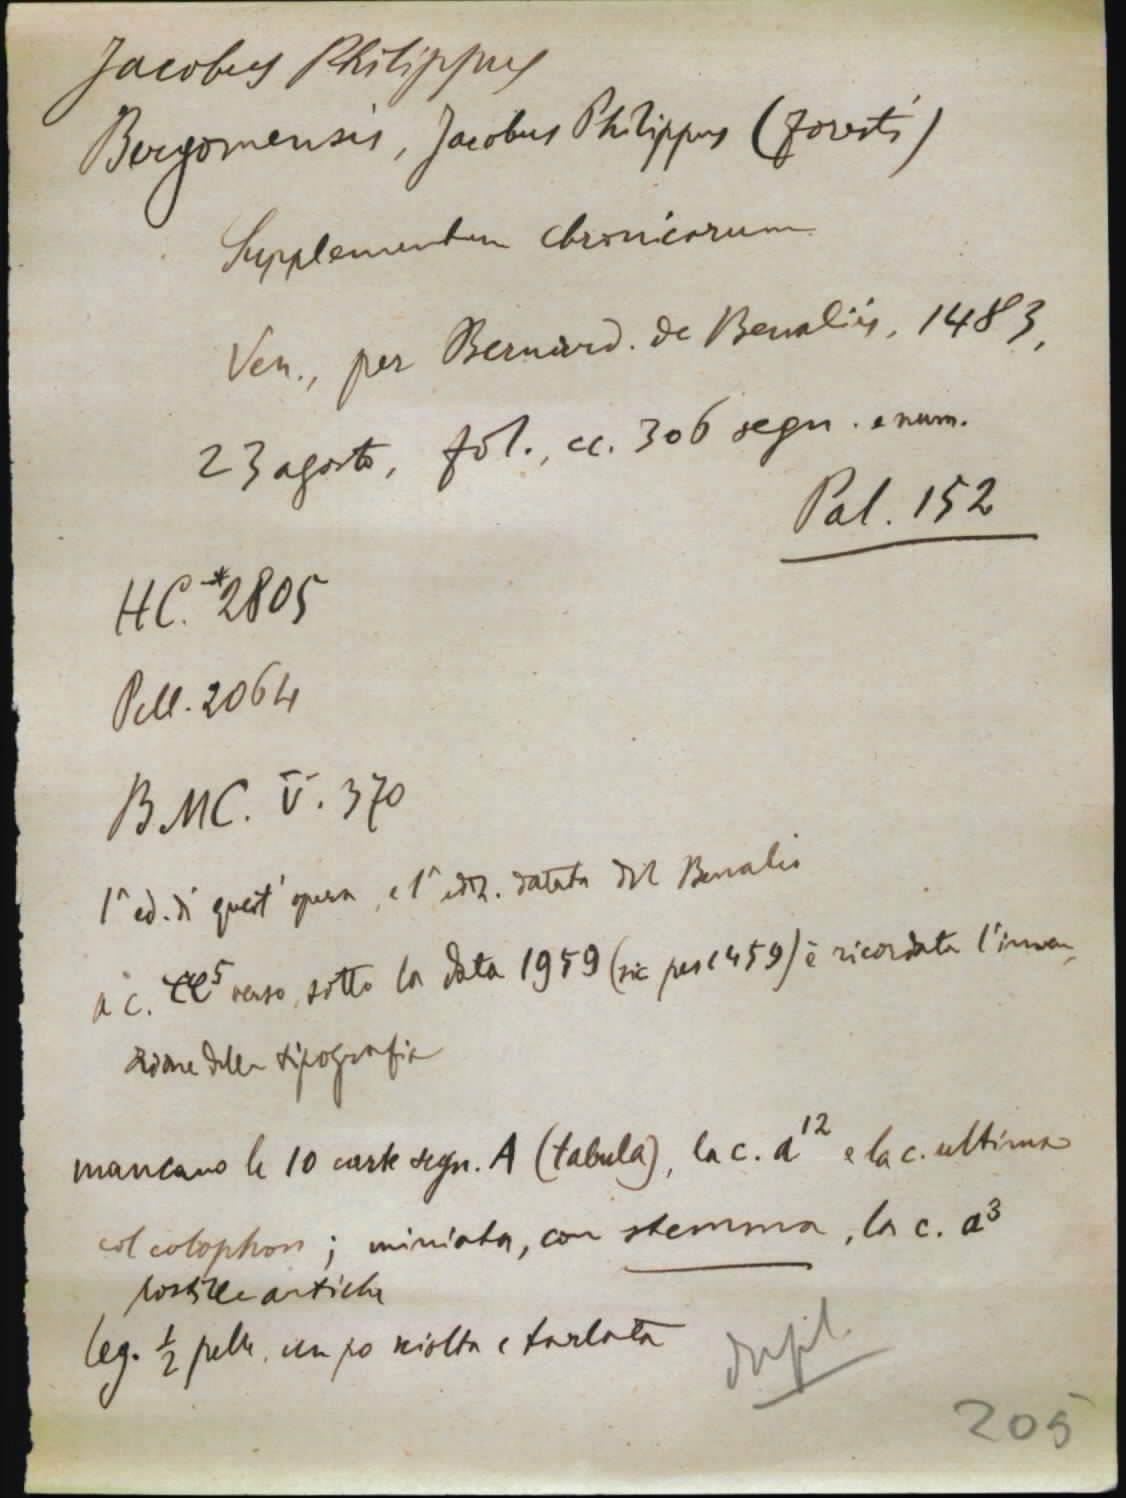 Jacobus Philippus
Bergomensis, Jacobus Philippus (foresti)
Supplementum chronicarum
Ven., per Bernard. de Benaliis, 1483,
23 agosto, fol., cc. 306 segn. e num.
Pal. 152
HC. *2805
Pell. 2064
BMC. V. 370
1ª ed. di quest'opera, e 1ª ediz. datata del Benalis
a c. verso, sotto la data 1959 (sic per 1459) è ricordata l'inven-
zione della tipografia
mancano le 10 carte segn. A (tabula), la c. a12 e la c. ultima
col colophon; miniata, con stemma, la c. a3
postille antiche
leg. ½ pelle, un po sciolta e tarlata
dupl.
205